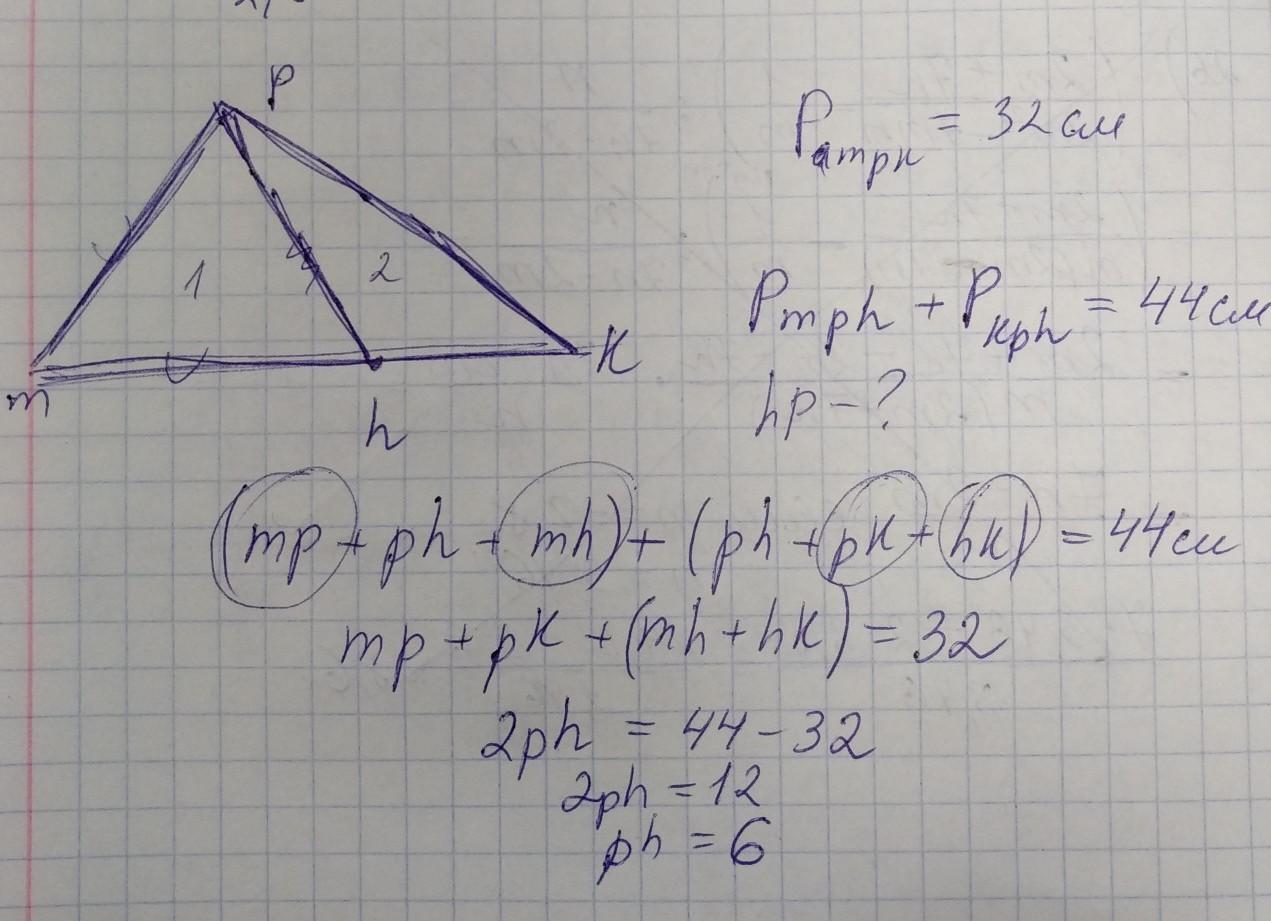 P
P▵mpk = 32 см
1
2
Pmph + Pkph = 44 см
K
m
h
hp - ?
(mp + ph + mh) + (ph + pk + hk) = 44 см
mp + pk + (mh + hk) = 32
2ph = 44 - 32
2ph = 12
ph = 6